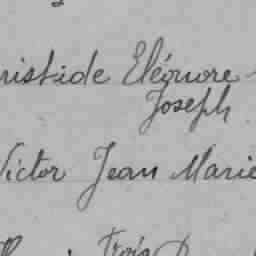 ristide Eléonore
Joseph
Victor Jean Marie
Trois